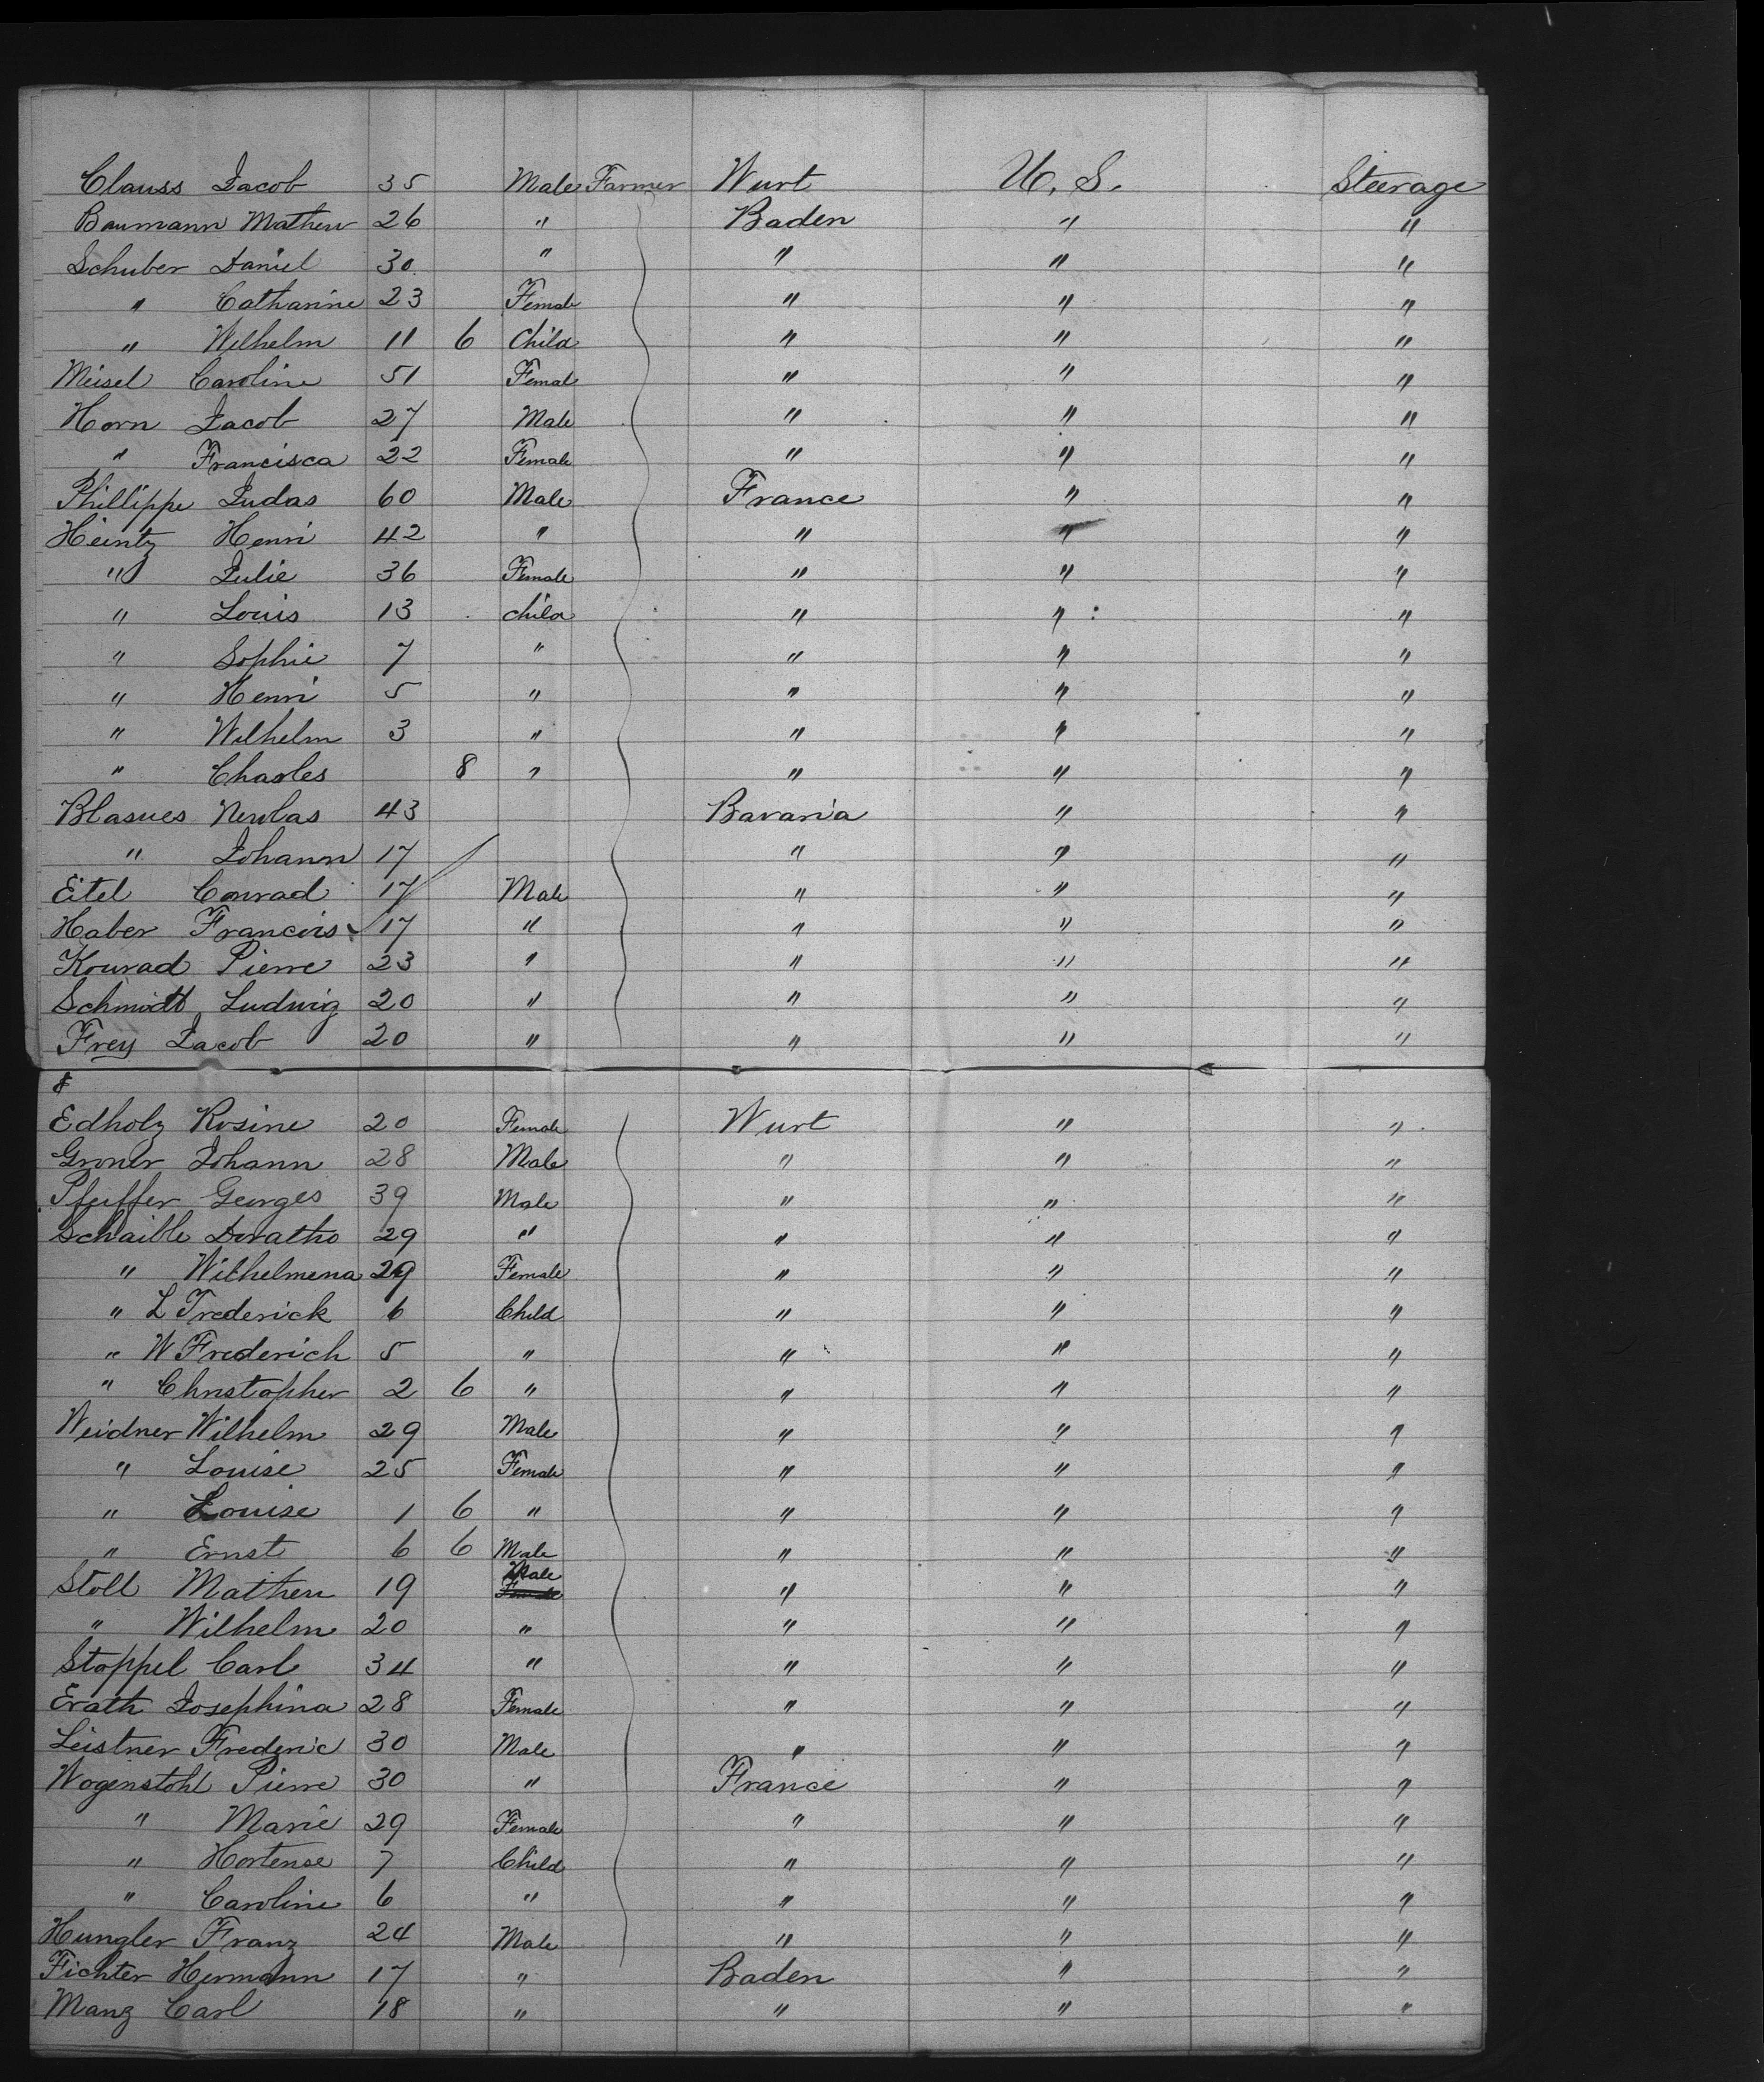 Clauss Jacob 35 Male Farmer Wurt U. S. Steerage
Baumann Mathew 26 " Baden " "
Schuber Daniel 30 " " " "
" Catharine 23 Female " " "
" Wilhelm 11 6 Child " " "
Meisel Caroline 51 Femal " " "
Horn Jacob 27 Male " " "
" Francisca 22 Female " " "
Phillippe Judas 60 Male France " "
Heintz Henri 42 " " " "
" Julie 36 Female " " "
" Louis 13 child " " "
" Sophie 7 " " " "
" Henri 5 " " " "
" Wilhelm 3 " " " "
" Charles 8 " " " "
Blasues 43 Bavaria " "
" Johann 17 " " "
Eitel Conrad 17 Male " " "
Haber Francois 17 " " " "
Konrad Pierre 23 " " " "
Schmidt Ludwig 20 " " " "
Frey Jacob 20 " " " "
Edholz Rosine 20 Female Wurt " "
Groner Johann 28 Male " " "
Pfeiffer Georges 39 Male " " "
Schaible Doratho 29 " " " "
" Wilhelmena 29 Female " " "
" L Frederick 6 Child " " "
" W Frederich 5 " " " "
" Christopher 2 6 " " " "
Weidner Wilhelm 29 Male " " "
" Louise 25 Female " " "
" Louise 1 6 " " " "
" Ernst 6 6 Male " " "
Stoll Mathew 19 Male " " "
" Wilhelm 20 " " " "
Stoppel Carl 34 " " " "
Erath Josephina 28 Female " " "
Leistner Frederic 30 Male " " "
Wogenstohl Pierre 30 " France " "
" Marie 29 Female " " "
" Hortense 7 Child " " "
" Caroline 6 " " " "
Hungler Franz 24 Male " " "
Fichter Hermann 17 " Baden " "
Manz Carl 18 " " " "